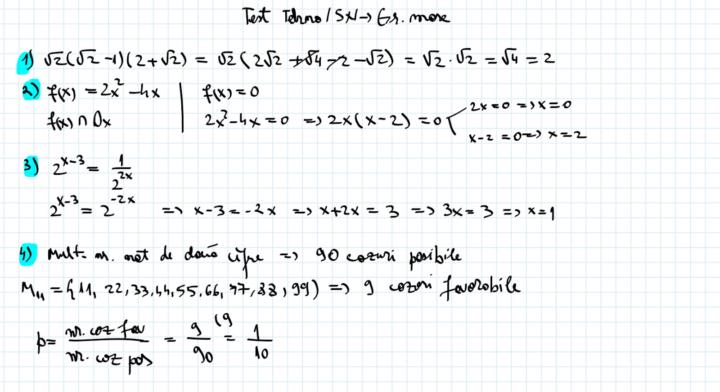 Test Tehno / SN → Gr. mare
1) √2(√2 -1)(2+√2) = √2(2√2 +√4 -2 -√2) = √2 · √2 = √4 = 2
2) f(x) = 2x² -4x | f(x) = 0
f(x) ∩ Ox | 2x² -4x = 0 => 2x(x-2) = 0 2x=0 => x=0
x-2=0 => x=2
3) 2^{x-3} = 1/2^{2x}
2^{x-3} = 2^{-2x} => x-3 = -2x => x+2x = 3 => 3x = 3 => x=1
4) Mult. nr. nat de două cifre => 90 cazuri posibile
M₁₁ = {11, 22, 33, 44, 55, 66, 77, 88, 99} => 9 cazuri favorabile
p = nr. caz fav / nr. caz pos = 9/90 (9 = 1/10